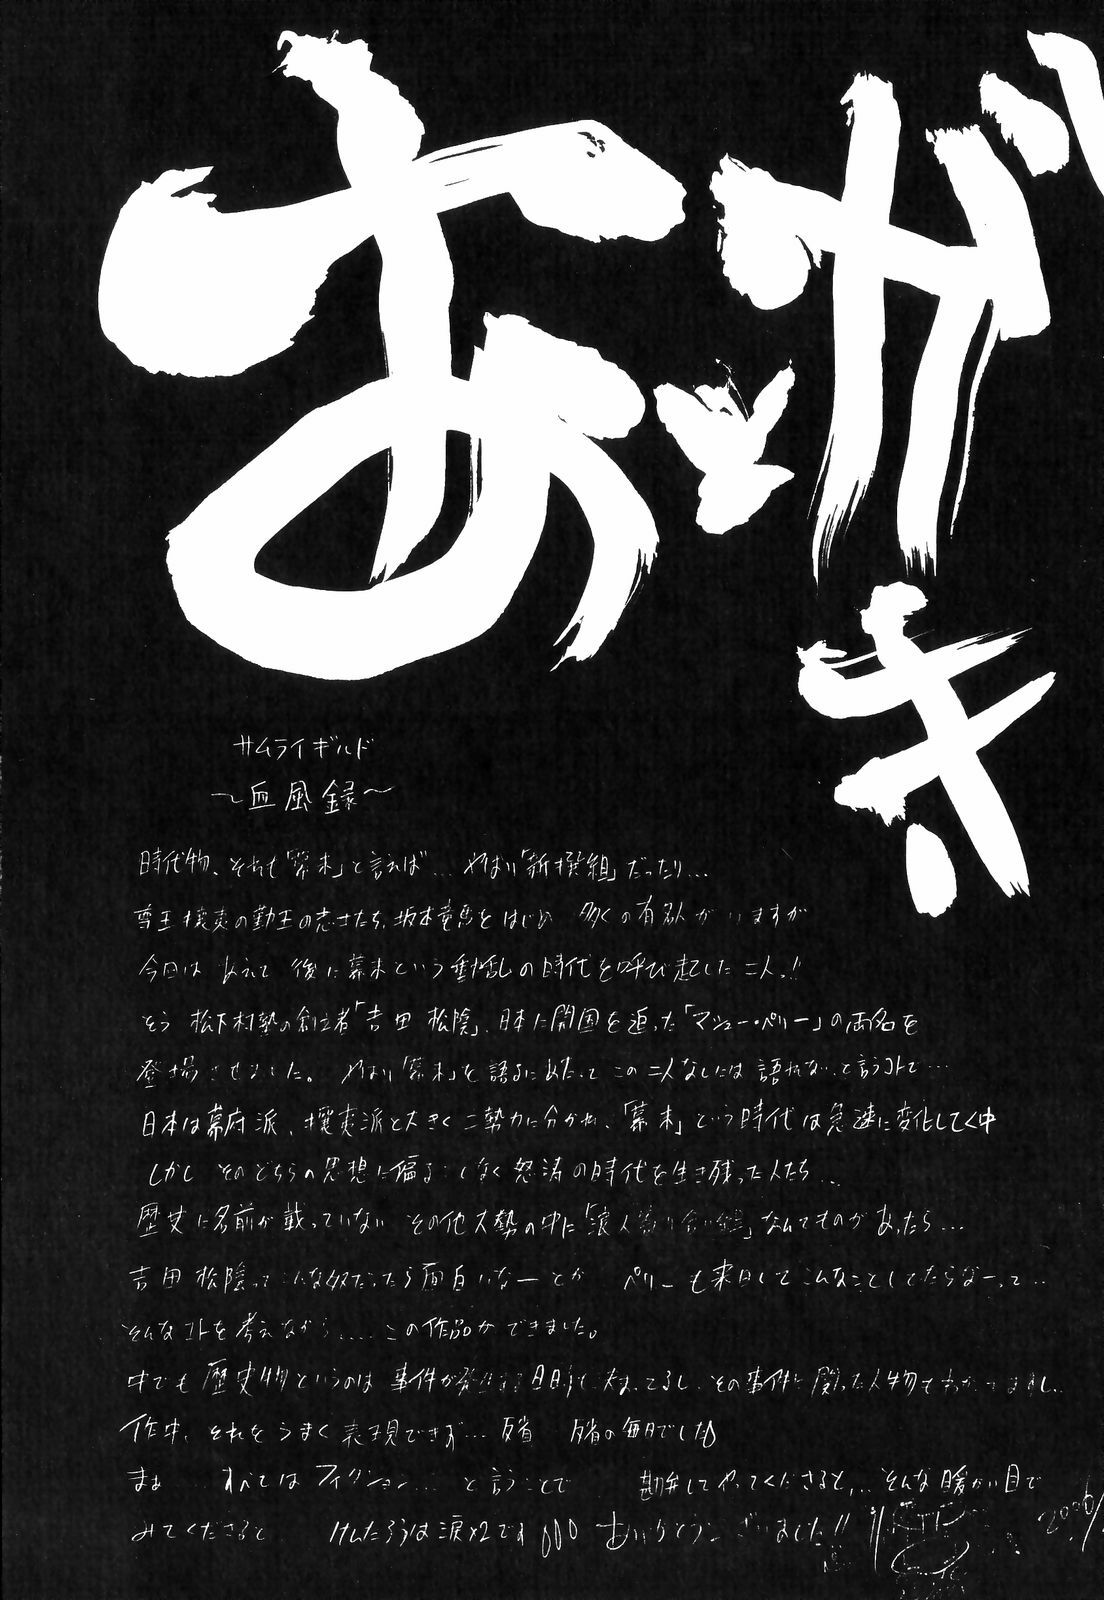 あとがき
サムライギルド
～血風録～
時代物、それも「幕末」と言えば… やはり「新撰組」だったり…
尊王攘夷の勤王の志士たち、坂本竜馬をはじめ 多くの有名人がいますが
今回は あえて 後に幕末という動乱の時代を呼び起した二人っ!!
そう 松下村塾の創立者「吉田 松陰」、日本に開国を迫った「マシュー・ペリー」の両名を
登場させました。 やはり「幕末」を語るにあたって この二人なしには語れない、と言うコトで…
日本は幕府派、攘夷派と大きく二勢力に分かれ、「幕末」という時代は急速に変化してく中
しかし そのどちらの思想に偏ることなく怒涛の時代を生き残った人たち…
歴史に名前が載っていない その他大勢の中に「浪人寄り合い組」なんてものがあったら…
吉田 松陰ってこんな奴だったら面白いなーとか ペリーも来日してこんなことしてたらなーって…
そんなコトを考えながら….この作品ができました。
中でも歴史物というのは 事件が発生する日時も決まってるし、その事件に関った人物も
作中、それをうまく表現できず… 反省 反省の毎日でした
まぁ… すべてはフィクション… と言うことで 勘弁してやってくださると… そんな暖かい目で
みてくださると けんたろうは涙×2です ありがとうございました!!